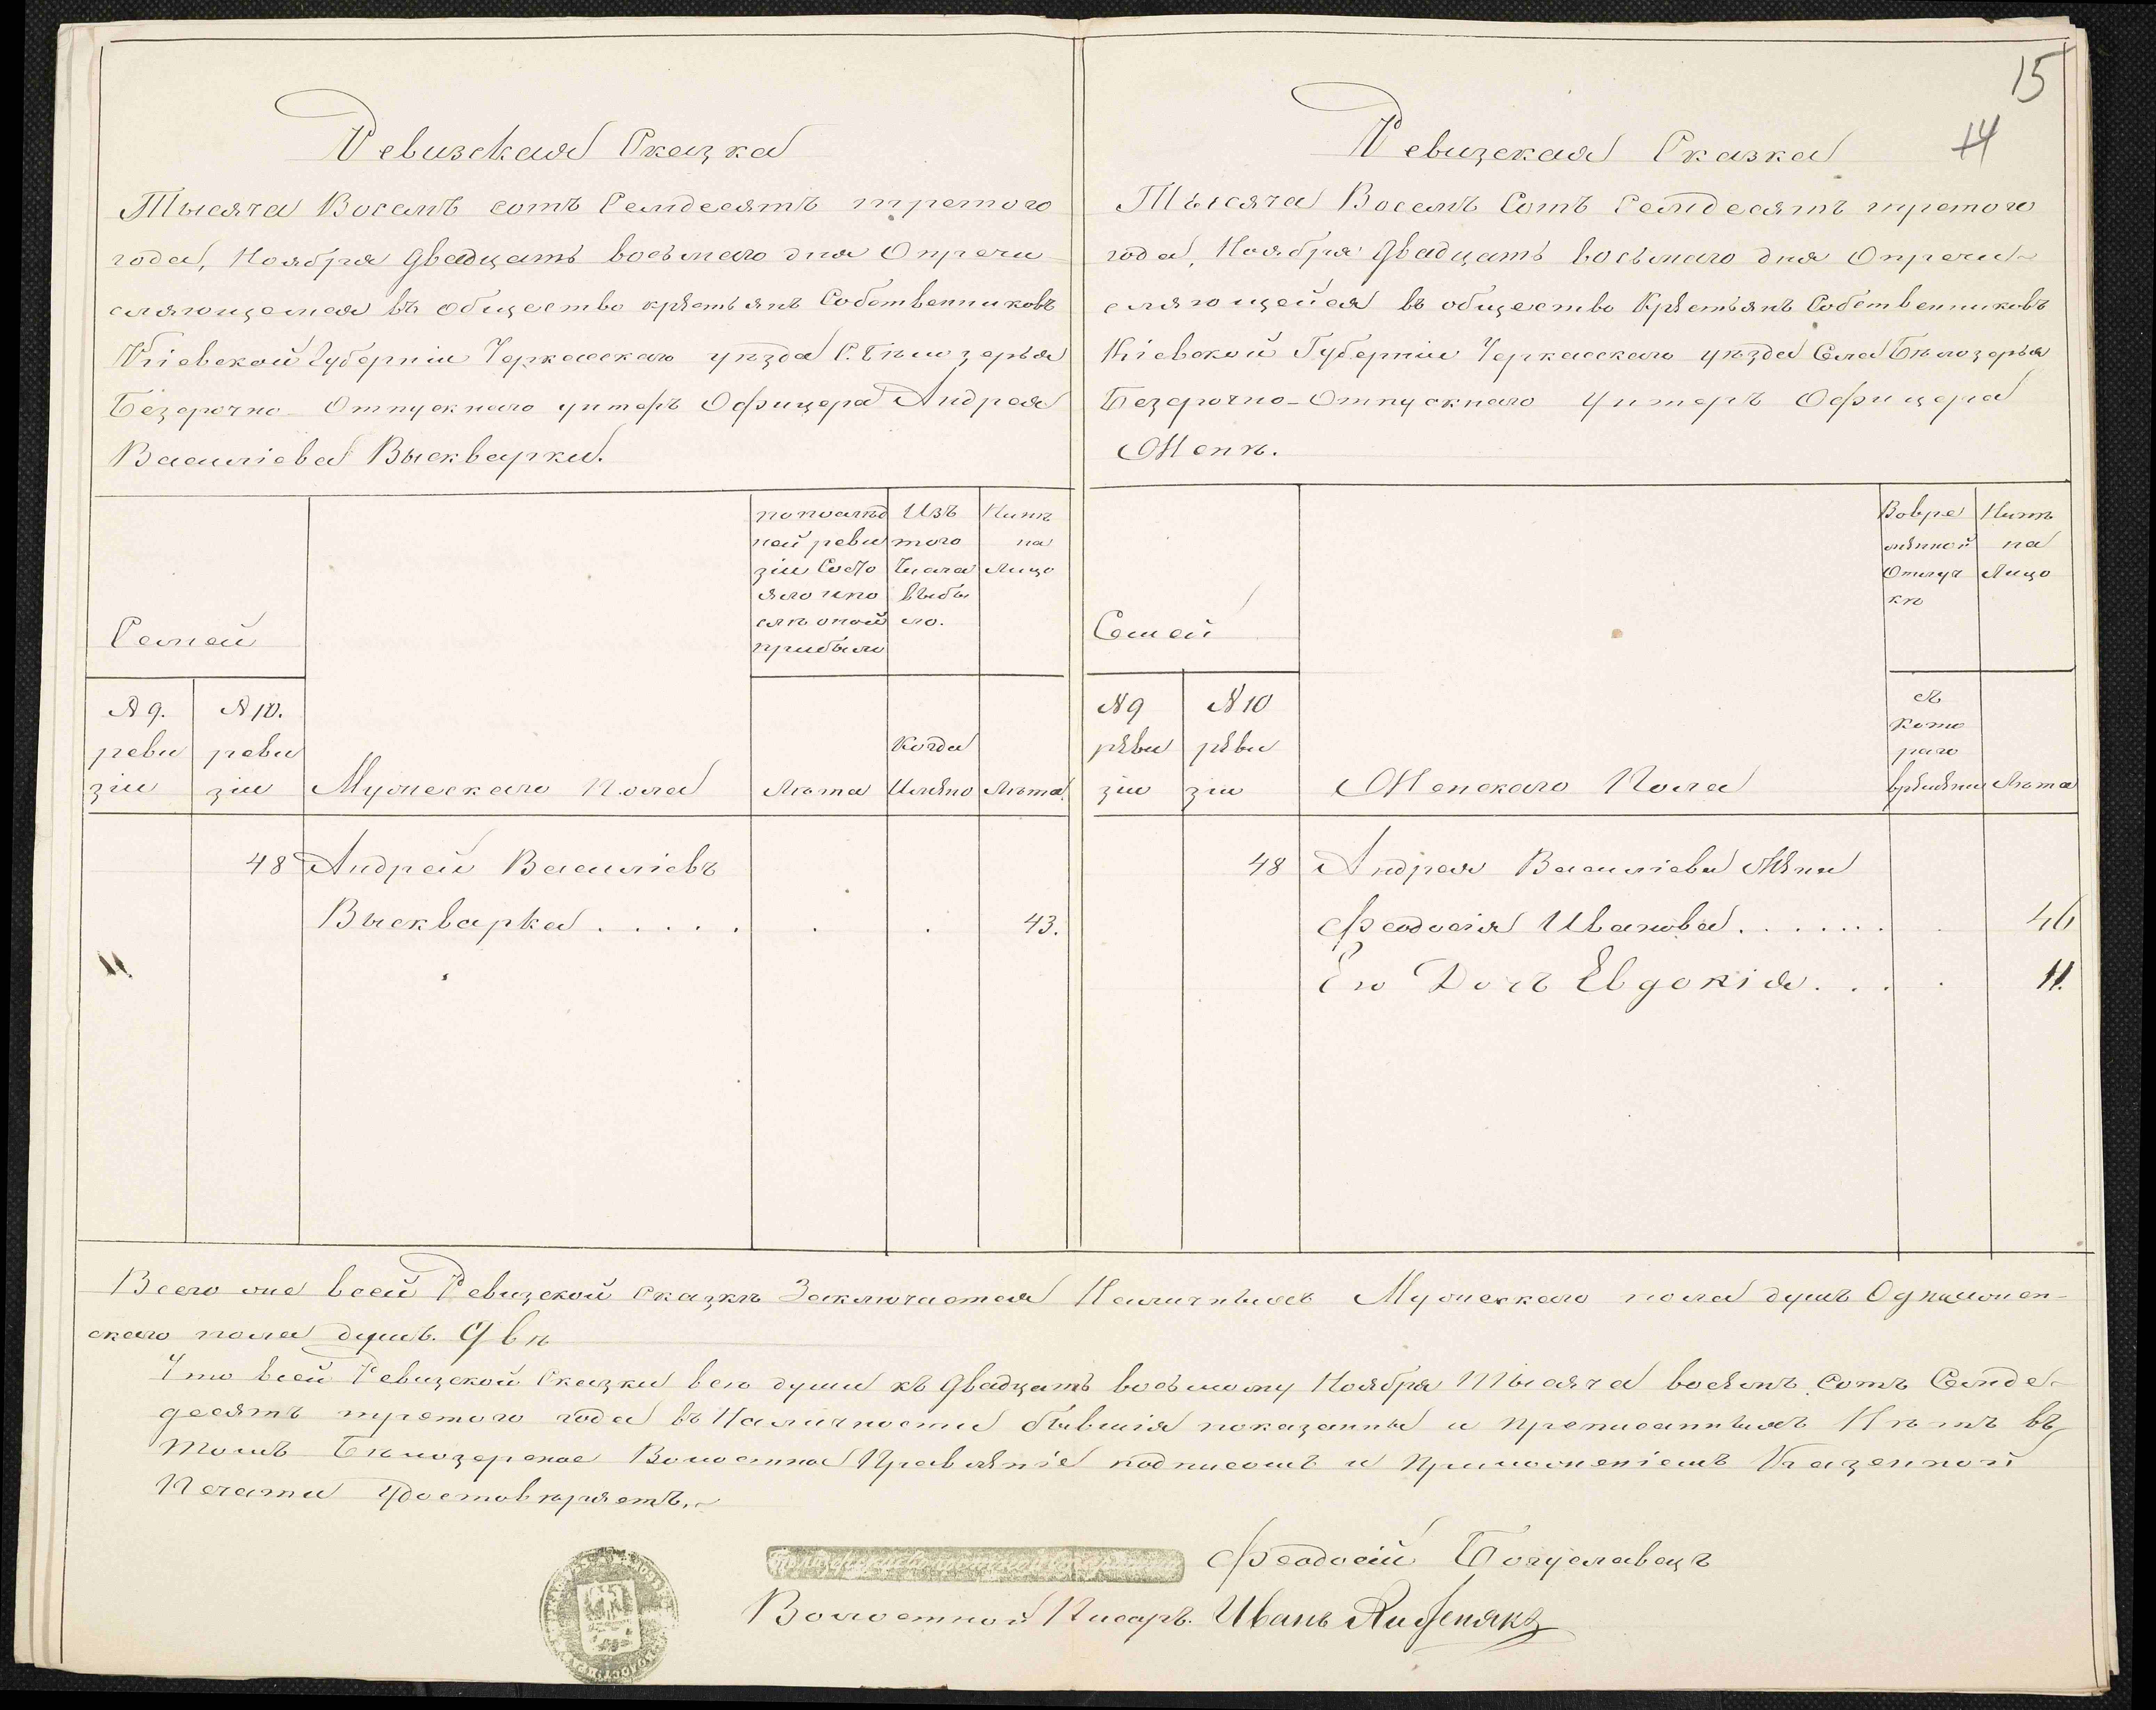 Ревизская Сказка
Тысяча Восемъ сотъ Семдесятъ третого
года, Ноября двадцать восьмаго дня О причи
сляющемся въ общество крестьянъ Собственниковъ
Кіевской Губерніи Черкасскаго уѣзда С. Бѣлозерья
Безсрочно Отпускнаго унтеръ Офицера Андрея
Василіева Выскварки.
Семей
№ 9. реви зіи
№ 10. реви зіи
Мужескаго Пола
по послѣд
ней реви
зіи Состо
яло и по
слѣ оной
прибыло
Лѣта
Изъ
того
Числа
выбы
ло.
Когда
Имѣно
Нинѣ
на
Лицо
Лѣта
48 Андрей Василіевъ
Выскварка . . . . . . . 43.
15
14
Ревизская Сказка
Тысяча Восемъ Сотъ Семдесятъ третого
года, Ноября двадцать восьмаго дня О причи-
сляющейся въ общество Крестьянъ Собственниковъ
Кіевской Губерніи Черкасскаго уѣзда Села Бѣлозерья
Безсрочно-Отпускнаго Унтеръ Офицера
Женѣ.
Семей
№ 9 реви зіи
№ 10 реви зіи
Женскаго Пола
Вовре
менной
Отлуч
кѣ
съ
кото
раго
времени
Нинѣ
на
Лицо
Лѣта
48 Андрея Василіева Жена
Феодосія Иванова . . . . . . . . 46
Его Дочъ Евдокія . . . . 11.
Всего же всей Ревизской сказкѣ Заключается Наличныхъ Мужескаго пола душъ Одна женъ-
скаго пола душъ. Двѣ
Что всей Ревизской Сказки всѣ души къ двадцать восьмому Ноября Тысяча восемъ сотъ Семде-
десятъ третого года въ Наличности бывшія показанны и преписанныхъ Нѣтъ въ
томъ Бѣлозерское Волостное Правленіе подписомъ и Приложеніемъ Казенной
Печати Удостовѣряетъ.
Феодосій Богуславецъ
Волостной Писарь. Иванъ